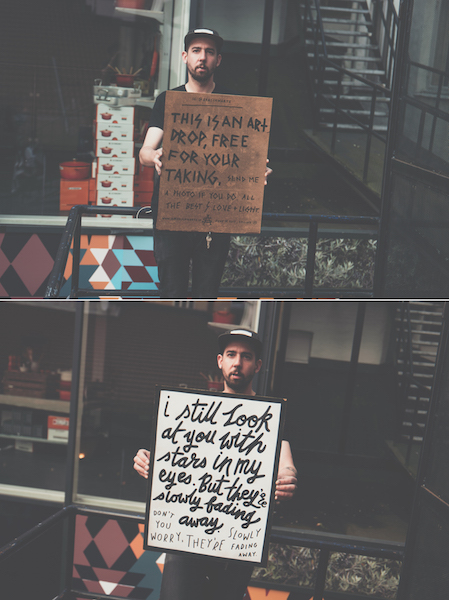 THIS IS AN ART
DROP, FREE
FOR YOUR
TAKING, SEND ME
A PHOTO IF YOU DO, ALL
THE BEST & LOVE & LIGHT
i still look
at you with
stars in my
eyes. But they're
slowly fading
away.
DON'T
YOU
WORRY, THEY'RE
SLOWLY
FADING
AWAY.